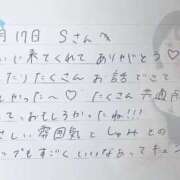 月17日 Sさんへ
いに来てくれてありがとう♡
たりたくさんお話できて
かった〜♡ たくさん共通点
って、おもしろかったね!!
さしい雰囲気としゅみとの
ップもすごくいいなぁってキュー